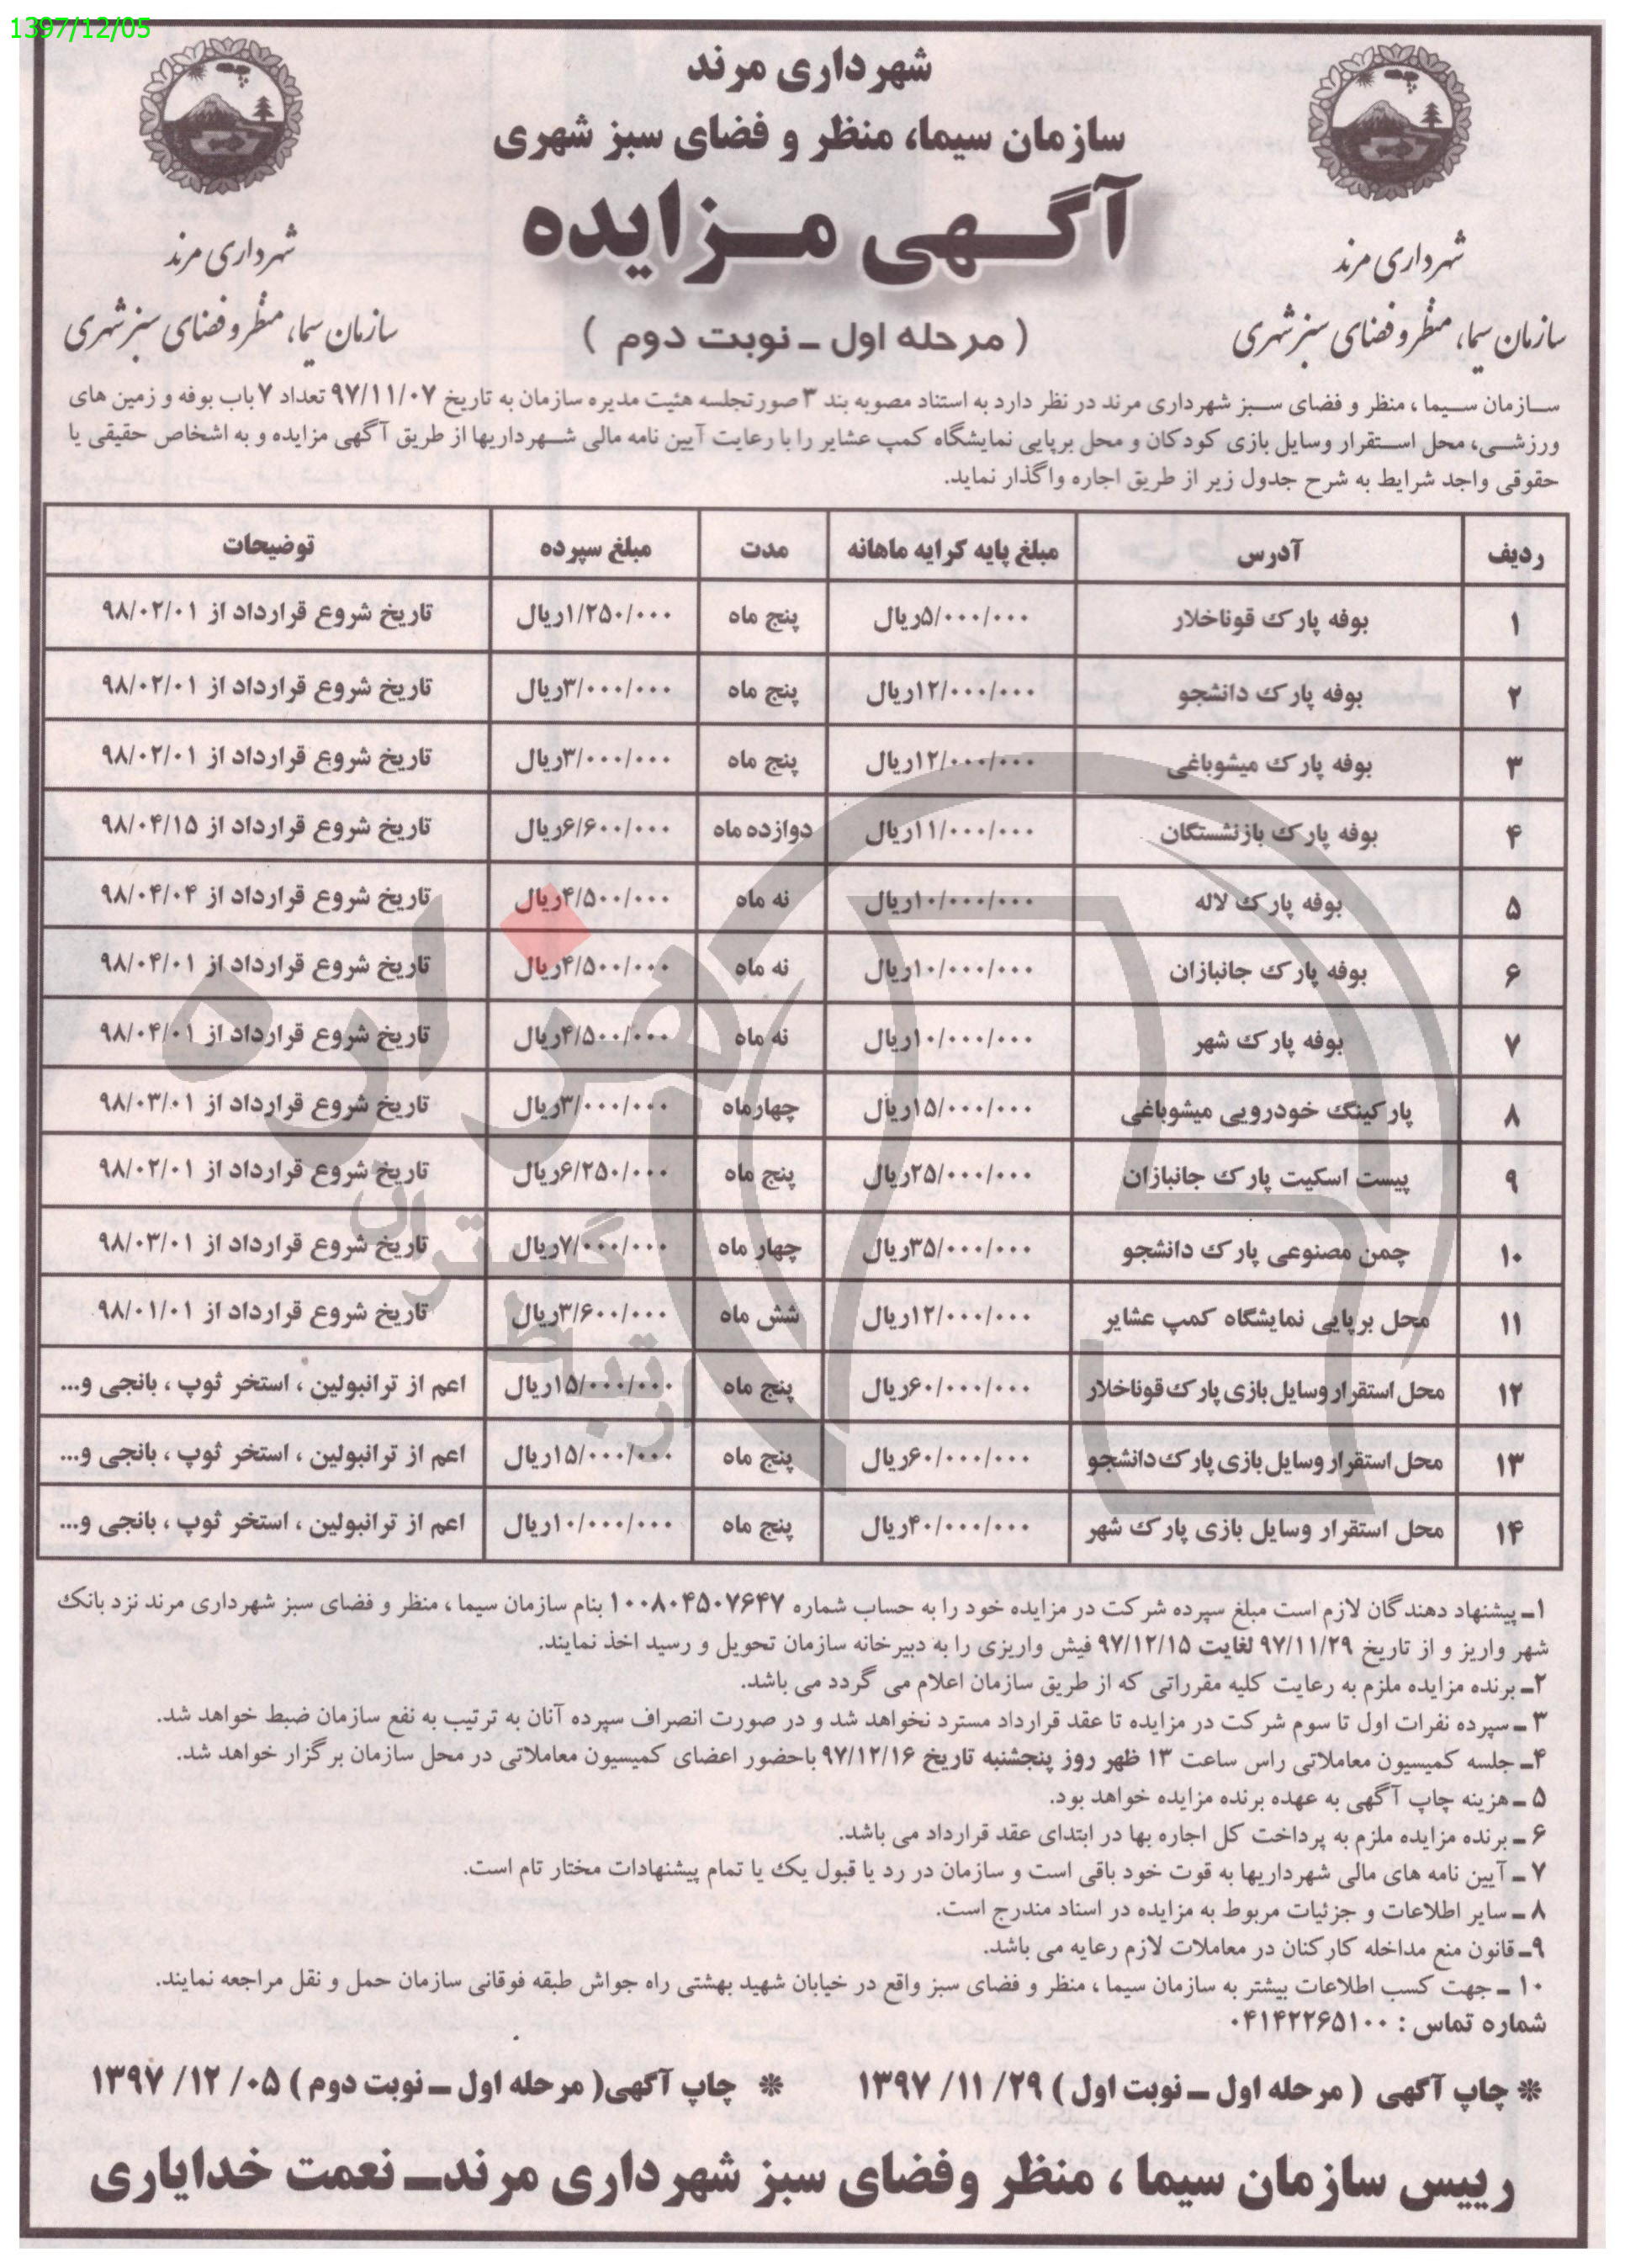 1397/12/05
شهرداری مرند
سازمان سیما، منظر و فضای سبز شهری
آگهی مزایده
( مرحله اول ـ نوبت دوم )
شهرداری مرند
سازمان سیما، منظر و فضای سبز شهری
شهرداری مرند
سازمان سیما، منظر و فضای سبز شهری
سازمان سیما ، منظر و فضای سبز شهرداری مرند در نظر دارد به استناد مصوبه بند ۳ صورتجلسه هئیت مدیره سازمان به تاریخ ۹۷/۱۱/۰۷ تعداد ۷ باب بوفه و زمین های
ورزشی، محل استقرار وسایل بازی کودکان و محل برپایی نمایشگاه کمپ عشایر را با رعایت آیین نامه مالی شهرداریها از طریق آگهی مزایده و به اشخاص حقیقی یا
حقوقی واجد شرایط به شرح جدول زیر از طریق اجاره واگذار نماید.
ردیف آدرس مبلغ پایه کرایه ماهانه مدت مبلغ سپرده توضیحات
۱ بوفه پارک قوناخلار ۵/۰۰۰/۰۰۰ریال پنج ماه ۱/۲۵۰/۰۰۰ریال تاریخ شروع قرارداد از ۹۸/۰۲/۰۱
۲ بوفه پارک دانشجو ۱۲/۰۰۰/۰۰۰ریال پنج ماه ۳/۰۰۰/۰۰۰ریال تاریخ شروع قرارداد از ۹۸/۰۲/۰۱
۳ بوفه پارک میشوباغی ۱۲/۰۰۰/۰۰۰ریال پنج ماه ۳/۰۰۰/۰۰۰ریال تاریخ شروع قرارداد از ۹۸/۰۲/۰۱
۴ بوفه پارک بازنشستگان ۱۱/۰۰۰/۰۰۰ریال دوازده ماه ۶/۶۰۰/۰۰۰ریال تاریخ شروع قرارداد از ۹۸/۰۴/۱۵
۵ بوفه پارک لاله ۱۰/۰۰۰/۰۰۰ریال نه ماه ۴/۵۰۰/۰۰۰ریال تاریخ شروع قرارداد از ۹۸/۰۴/۰۴
۶ بوفه پارک جانبازان ۱۰/۰۰۰/۰۰۰ریال نه ماه ۴/۵۰۰/۰۰۰ریال تاریخ شروع قرارداد از ۹۸/۰۴/۰۱
۷ بوفه پارک شهر ۱۰/۰۰۰/۰۰۰ریال نه ماه ۴/۵۰۰/۰۰۰ریال تاریخ شروع قرارداد از ۹۸/۰۴/۰۱
۸ پارکینگ خودرویی میشوباغی ۱۵/۰۰۰/۰۰۰ریال چهارماه ۳/۰۰۰/۰۰۰ریال تاریخ شروع قرارداد از ۹۸/۰۳/۰۱
۹ پیست اسکیت پارک جانبازان ۲۵/۰۰۰/۰۰۰ریال پنج ماه ۶/۲۵۰/۰۰۰ریال تاریخ شروع قرارداد از ۹۸/۰۲/۰۱
۱۰ چمن مصنوعی پارک دانشجو ۳۵/۰۰۰/۰۰۰ریال چهار ماه ۷/۰۰۰/۰۰۰ریال تاریخ شروع قرارداد از ۹۸/۰۳/۰۱
۱۱ محل برپایی نمایشگاه کمپ عشایر ۱۲/۰۰۰/۰۰۰ریال شش ماه ۳/۶۰۰/۰۰۰ریال تاریخ شروع قرارداد از ۹۸/۰۱/۰۱
۱۲ محل استقرار وسایل بازی پارک قوناخلار ۶۰/۰۰۰/۰۰۰ریال پنج ماه ۱۵/۰۰۰/۰۰۰ریال اعم از ترانبولین ، استخر ثوپ ، بانجی و...
۱۳ محل استقرار وسایل بازی پارک دانشجو ۶۰/۰۰۰/۰۰۰ریال پنج ماه ۱۵/۰۰۰/۰۰۰ریال اعم از ترانبولین ، استخر ثوپ ، بانجی و...
۱۴ محل استقرار وسایل بازی پارک شهر ۴۰/۰۰۰/۰۰۰ریال پنج ماه ۱۰/۰۰۰/۰۰۰ریال اعم از ترانبولین ، استخر ثوپ ، بانجی و...
۱ـ پیشنهاد دهندگان لازم است مبلغ سپرده شرکت در مزایده خود را به حساب شماره ۱۰۰۸۰۴۵۰۷۶۴۷ بنام سازمان سیما ، منظر و فضای سبز شهرداری مرند نزد بانک
شهر واریز و از تاریخ ۹۷/۱۱/۲۹ لغایت ۹۷/۱۲/۱۵ فیش واریزی را به دبیرخانه سازمان تحویل و رسید اخذ نمایند.
۲ـ برنده مزایده ملزم به رعایت کلیه مقرراتی که از طریق سازمان اعلام می گردد می باشد.
۳ ـ سپرده نفرات اول تا سوم شرکت در مزایده تا عقد قرارداد مسترد نخواهد شد و در صورت انصراف سپرده آنان به ترتیب به نفع سازمان ضبط خواهد شد.
۴ـ جلسه کمیسیون معاملاتی راس ساعت ۱۳ ظهر روز پنجشنبه تاریخ ۹۷/۱۲/۱۶ باحضور اعضای کمیسیون معاملاتی در محل سازمان برگزار خواهد شد.
۵ ـ هزینه چاپ آگهی به عهده برنده مزایده خواهد بود.
۶ ـ برنده مزایده ملزم به پرداخت کل اجاره بها در ابتدای عقد قرارداد می باشد.
۷ ـ آیین نامه های مالی شهرداریها به قوت خود باقی است و سازمان در رد یا قبول یک یا تمام پیشنهادات مختار تام است.
۸ ـ سایر اطلاعات و جزئیات مربوط به مزایده در اسناد مندرج است.
۹ـ قانون منع مداخله کارکنان در معاملات لازم رعایه می باشد.
۱۰ ـ جهت کسب اطلاعات بیشتر به سازمان سیما ، منظر و فضای سبز واقع در خیابان شهید بهشتی راه جواش طبقه فوقانی سازمان حمل و نقل مراجعه نمایند.
شماره تماس : ۰۴۱۴۲۲۶۵۱۰۰
* چاپ آگهی ( مرحله اول ـ نوبت اول ) ۲۹/ ۱۱/ ۱۳۹۷ * چاپ آگهی( مرحله اول ـ نوبت دوم ) ۰۵/ ۱۲/ ۱۳۹۷
رییس سازمان سیما ، منظر وفضای سبز شهرداری مرندـ نعمت خدایاری